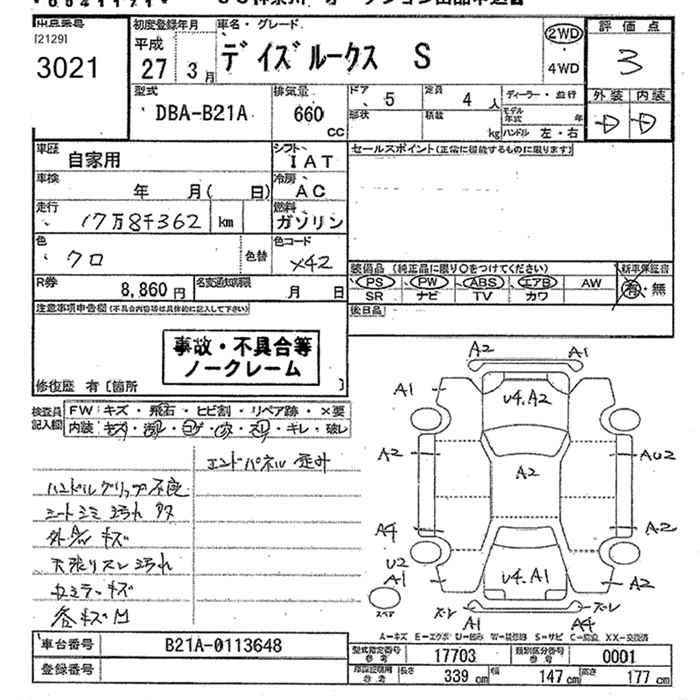 [2129]
3021
初度登録年月
平成
27 3月
車名・グレード
デイズルークス S
2WD
4WD
評価点
3
外装 内装
D D
型式
DBA-B21A
排気量
660
CC
ドア
5
定員
4人
形状
積載
kg
ディーラー・並行
モデル年式 年
ハンドル 左・右
車歴
自家用
シフト
IAT
車検
年 月( 日)
冷房
AC
走行
17万8千362 km
燃料
ガソリン
色
クロ
色替
色コード
X42
R券
8,860円
名変通知期限
月 日
セールスポイント(正常に機能するものに限ります)
装備品 (純正品に限り○をつけてください)
PS PW ABS エアB AW
SR ナビ TV カワ
新車保証書
有・無
後日品
注意事項申告欄(不具合内容等は具体的に記入して下さい)
事故・不具合等
ノークレーム
修復歴 有〔箇所 〕
検査員記入欄
FW キズ・飛石・ヒビ割・リペア跡・×要
内装 キレ・破レ
エンドパネル 歪み
ハンドルグリップ不良
シートシミ 汚れ
キズ
天張りスレ 汚れ
各キズ凹
A2 A1
A1
U4.A2
A2
A2
AU2
A4
A2
U2
A1
U4.A1
A2
スペア
スレ スレ
A1 A4
A-キズ E-エクボ U-凹み W-補修跡 S-サビ C-腐食 XX-交換済
車台番号
B21A-0113648
登録番号
型式指定番号
参考
17703
類別区分番号
参考
0001
参考
長さ
339cm
幅
147cm
高さ
177cm